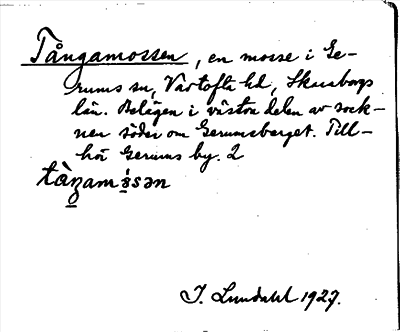 Tångamossen, en mosse i Ge-
rums sn, Vartofta hd, Skaraborgs
län. Belägen i västra delen av sock-
nen söder om Gerumsberget. Till-
hör Gerums by. 2
tàŋamåsən
J. Lundahl 1927.